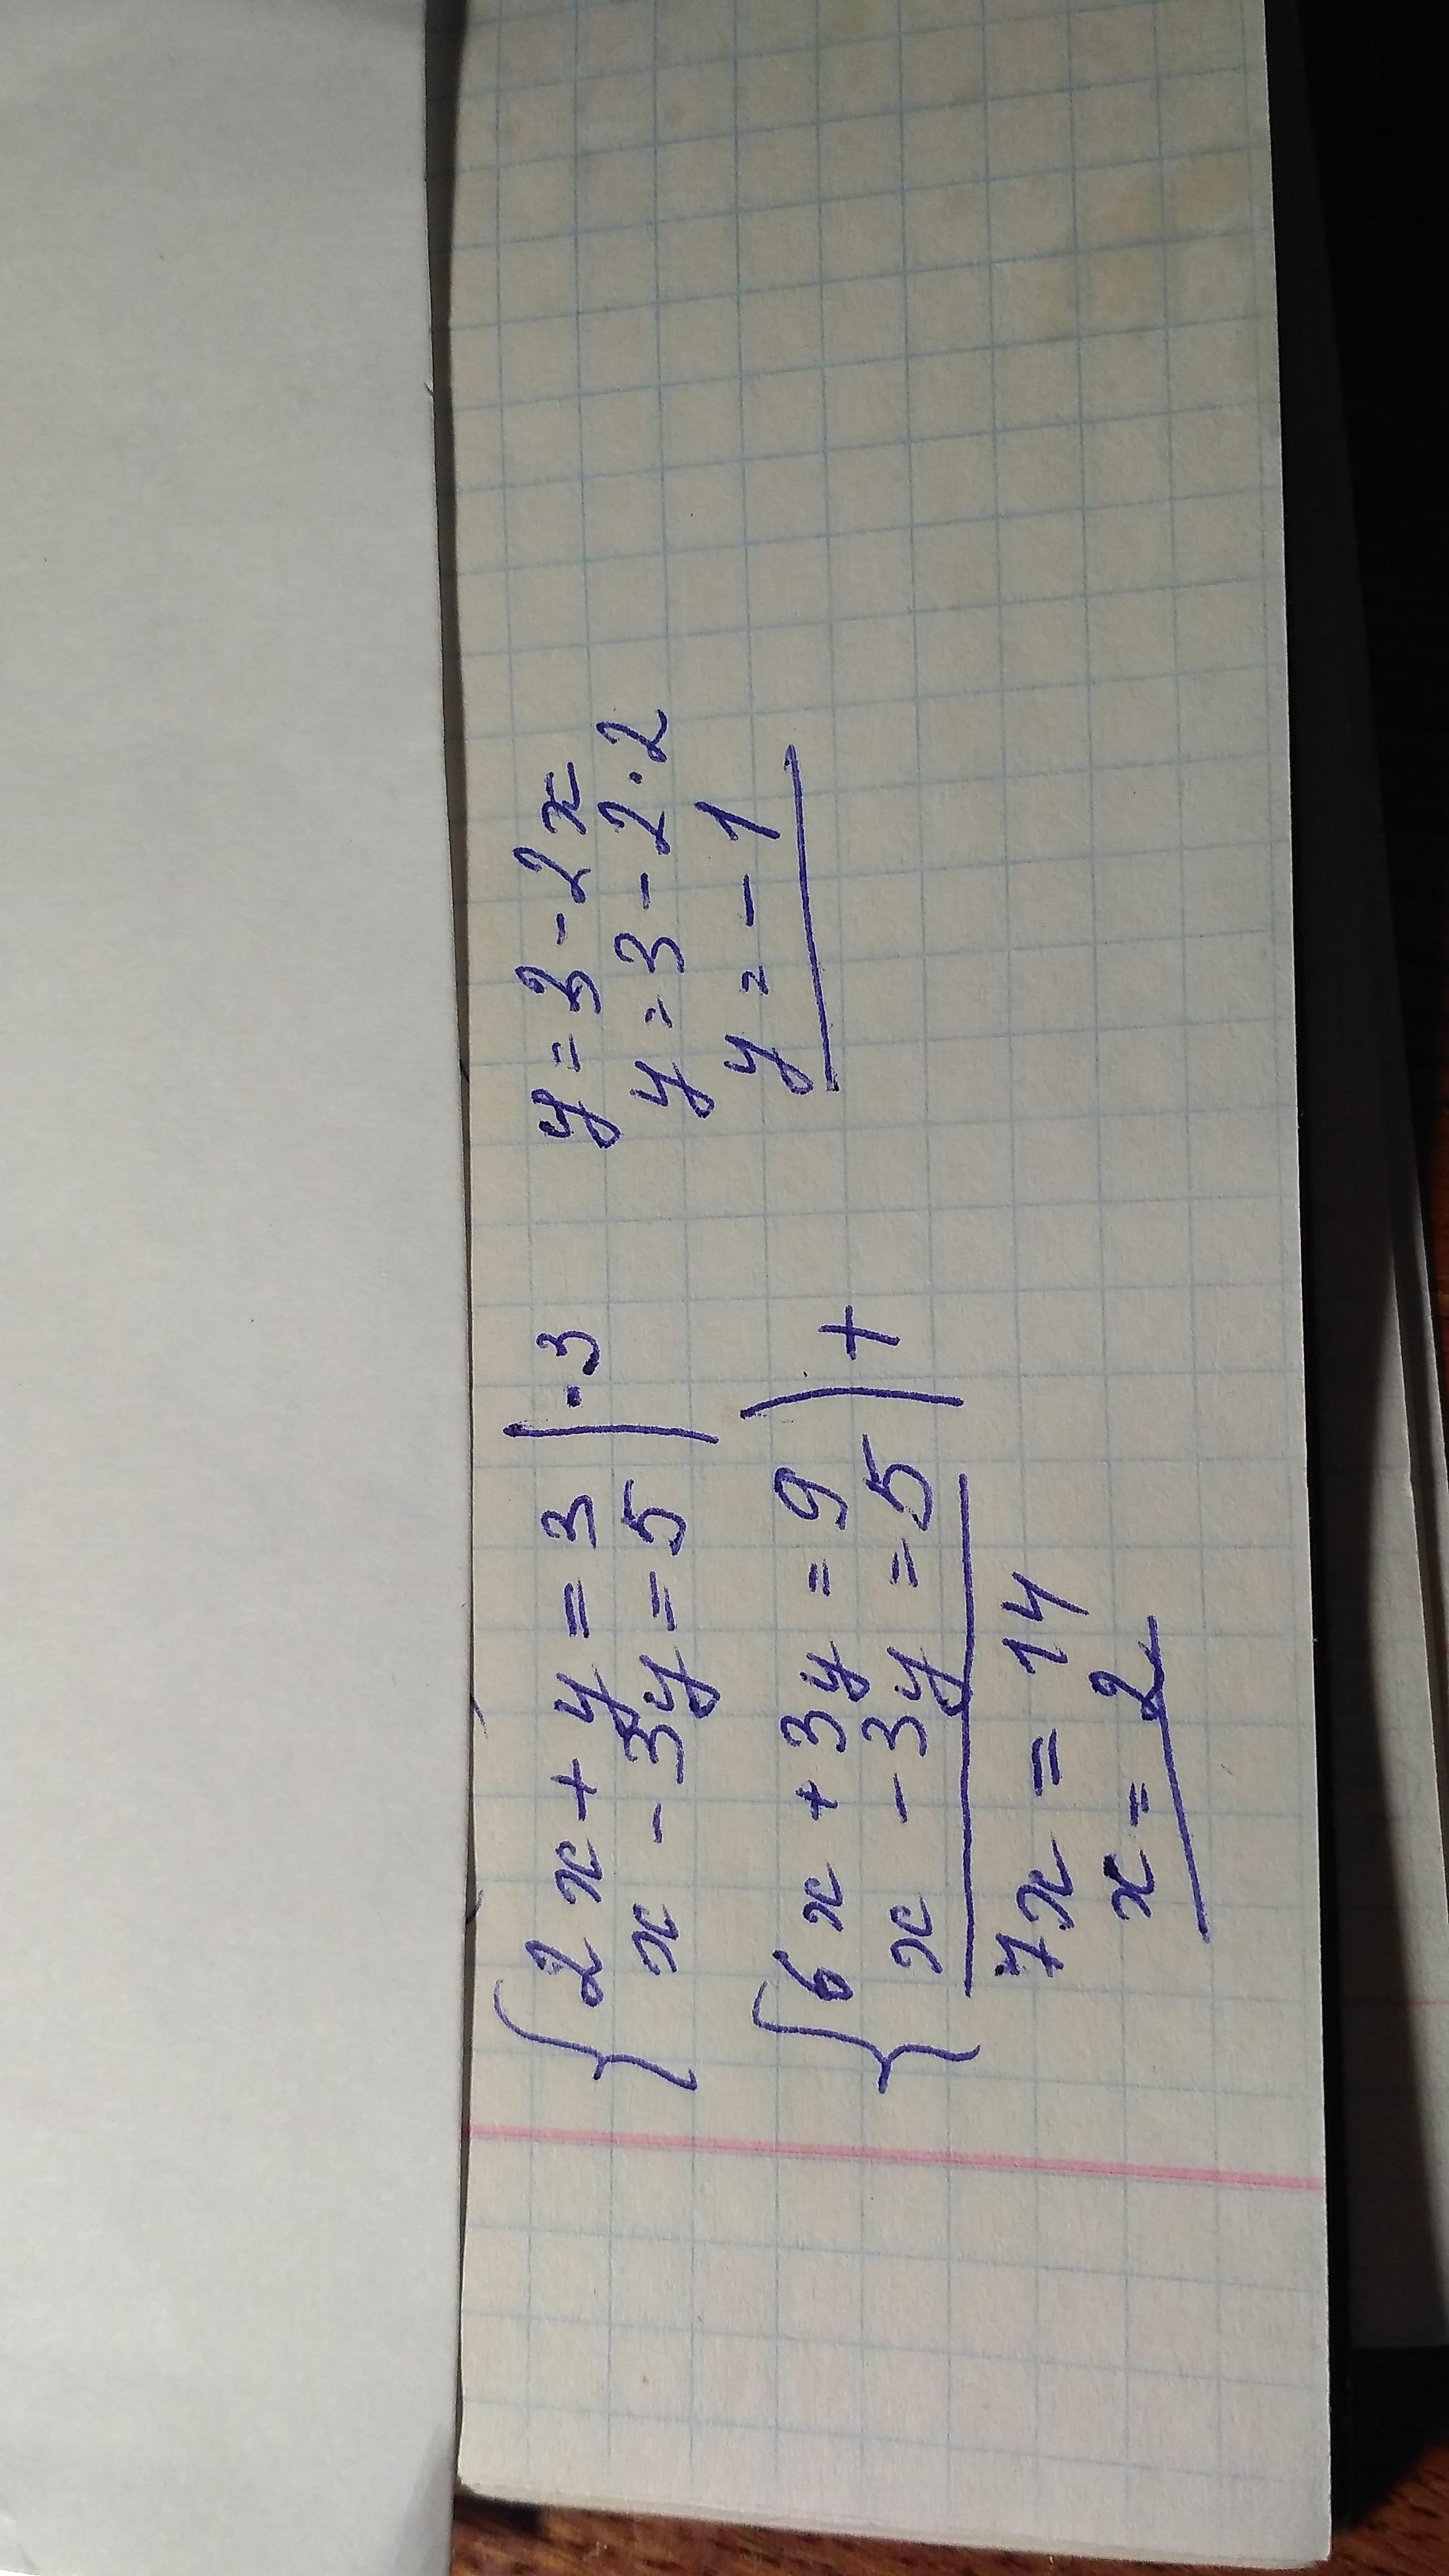 {2x + y = 3 | · 3
x - 3y = 5
{6x + 3y = 9 ) +
x - 3y = 5
7x = 14
x = 2
y = 3 - 2x
y = 3 - 2 · 2
y = - 1